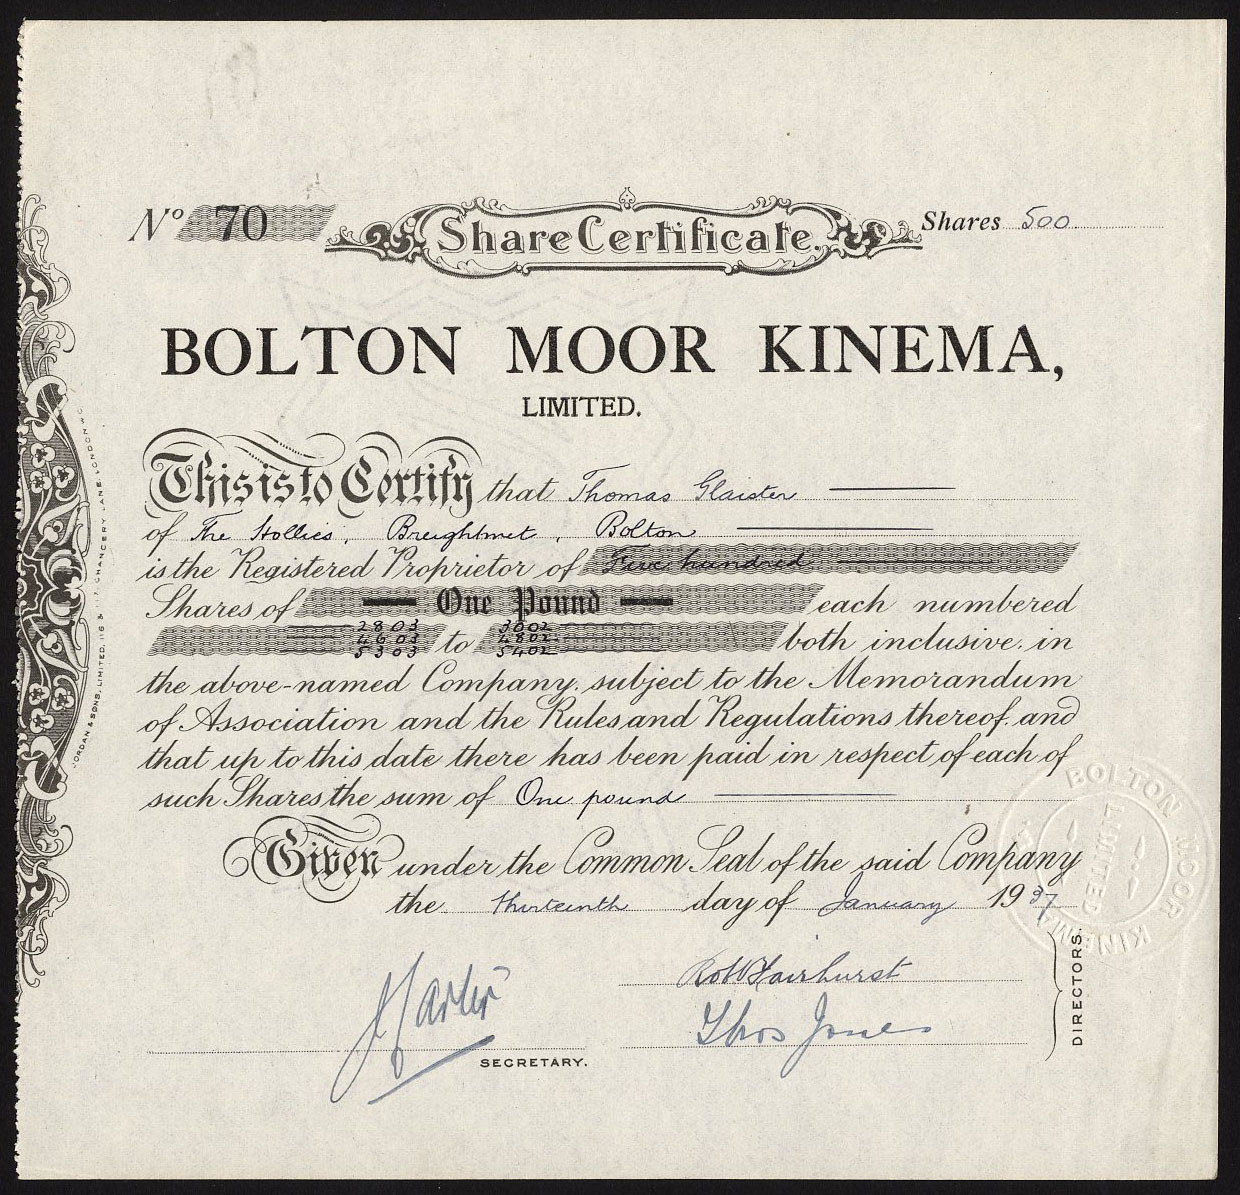 No 70
Share Certificate.
Shares 500
BOLTON MOOR KINEMA,
LIMITED.
This is to Certify that Thomas Glaister
of The Hollies, Breightmet, Bolton
is the Registered Proprietor of Five hundred
Shares of One Pound each numbered
2803 3002
4603 to 4802 both inclusive, in
5303 5402
the above-named Company, subject to the Memorandum
of Association and the Rules and Regulations thereof, and
that up to this date there has been paid in respect of each of
such Shares the sum of One pound
Given under the Common Seal of the said Company
the thirteenth day of January 1937
Fairhurst
Thos Jones
SECRETARY.
DIRECTORS.
JORDAN & SONS, LIMITED, 116 & 117 CHANCERY LANE, LONDON W.C.
BOLTON MOOR KINEMA
LIMITED